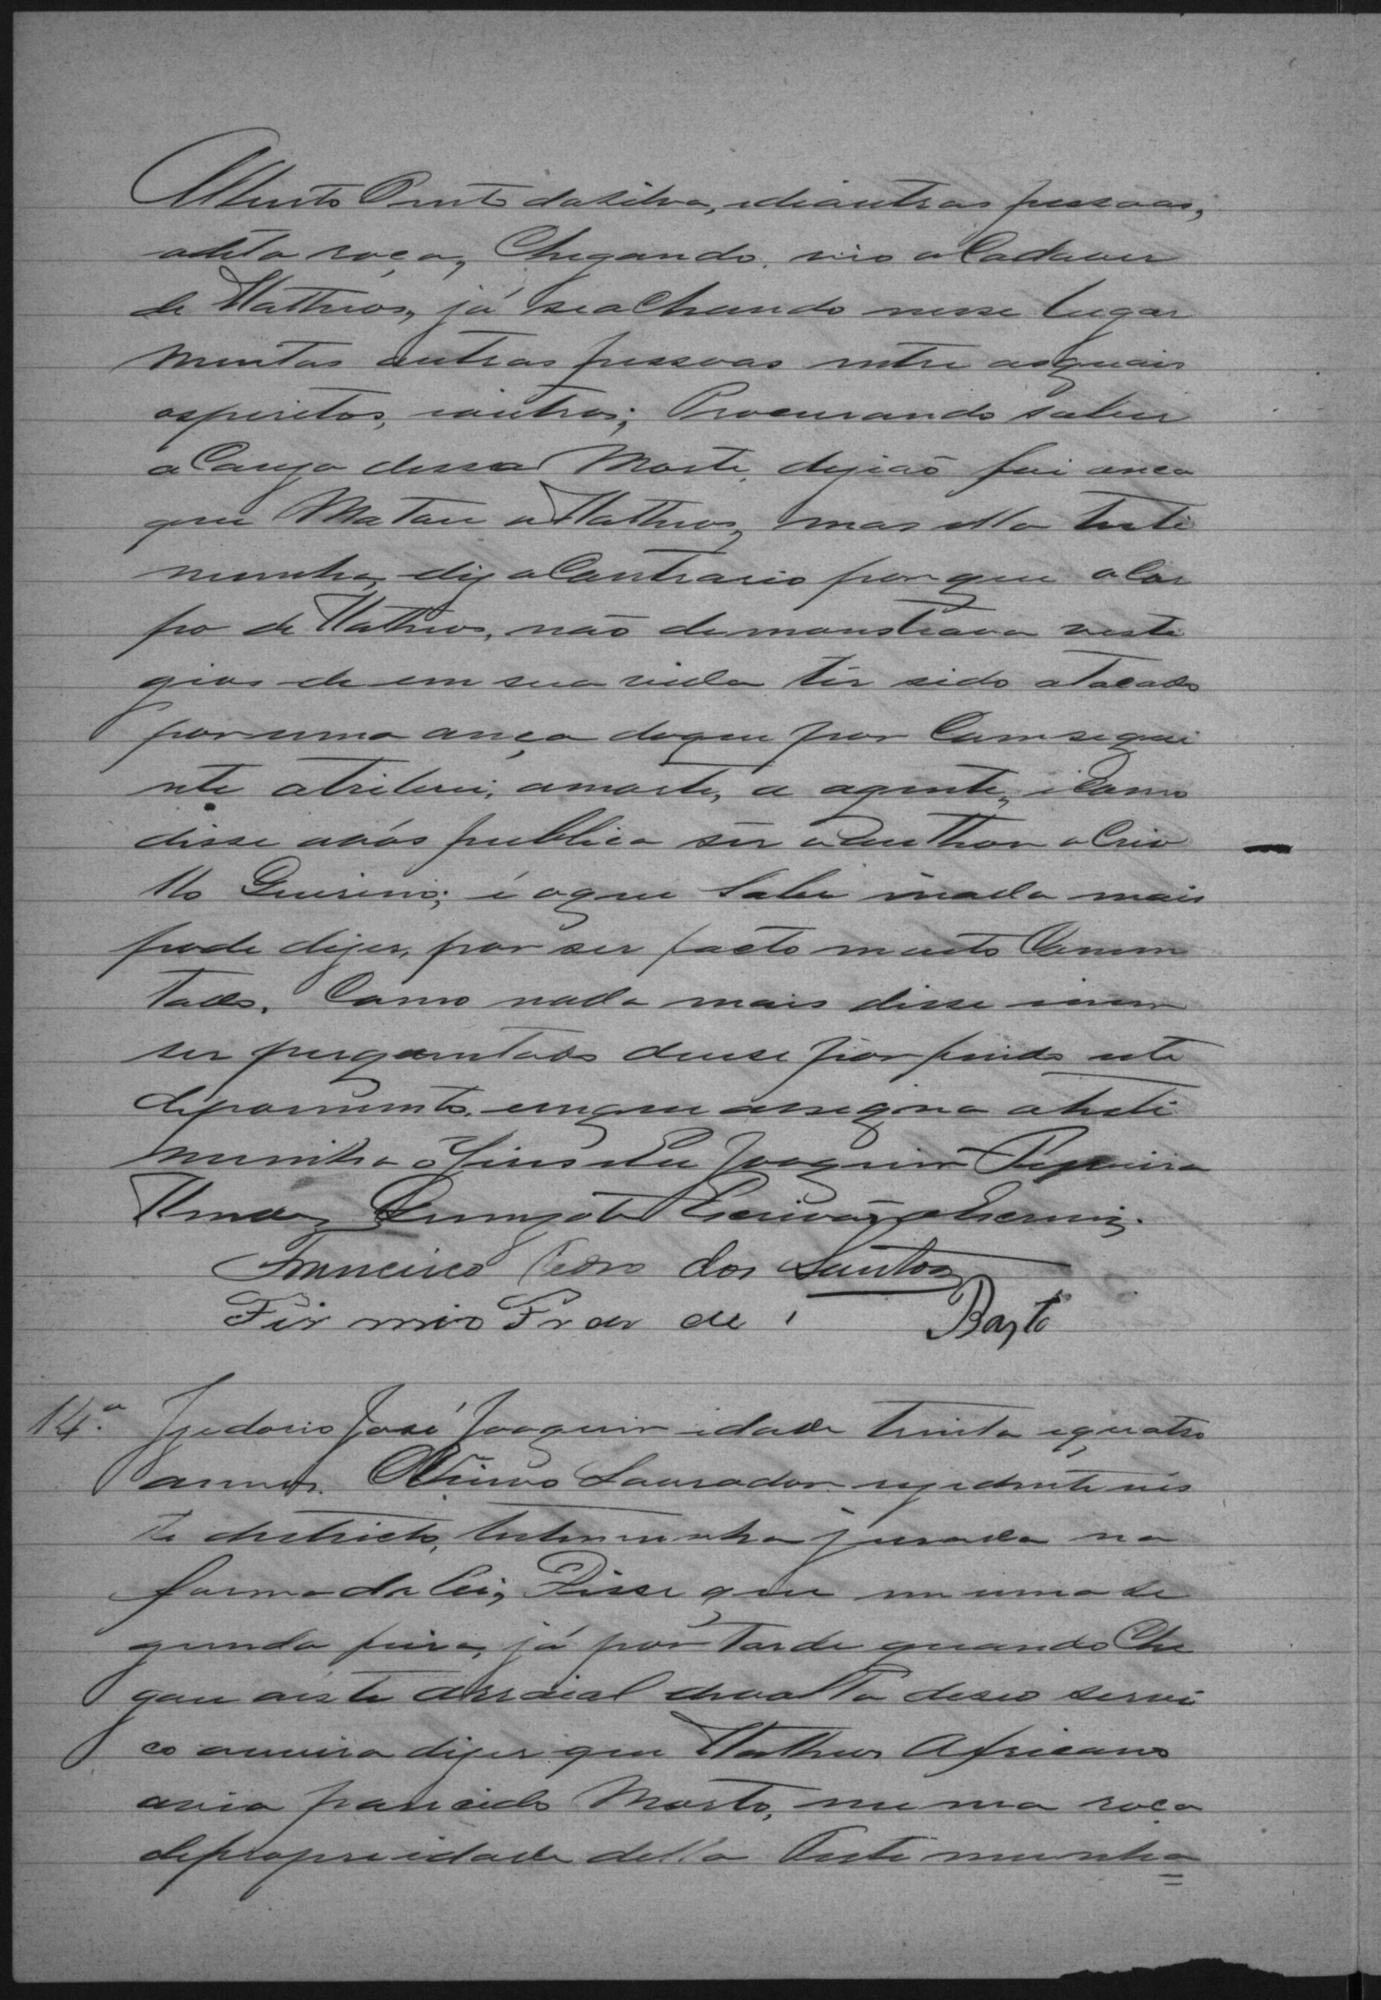 Alberto Pinto da Silva, e di outras pessoas,
a dita roça, Chegando, vio o Cadaver
de Matheos, já se a Chando nesse lugar
muntas outras pessoas entre as quais
os peritos, i outros; Procurando saber
a Cauza dessa Morte, dizião foi onca
que Matou a Matheos, mas ella teste
munha, diz o Contrario por que o Cor
po de Matheos, não demonstrava veste
gios de em sua vida ter sido atacado
por uma onça do que por Comsegui
nte atribui, a morte, a agente, i Como
disse a vós publica ser o author o Crio
llo Quirino; é o que sabe i nada mais
pode dizer, por ser facto muito Comm
tado. Como nada mais disse i nem
ser perguntado deu se por findo este
depoimento em que assigna a teste
munha o Juis e Eu Joaquim
Mendes Escrivão o Escrevi.
Francisco Pedro dos Santos
Firmio Frde de Basto
14.ª Izidorio José Joaquim idade trinta e quatro
annos. Lavrador rezidente nés
te districto, testemunha jurada na
forma da lei, Disse que em uma se
gunda feira, já por tarde quando Che
gou a éste arraial de volta de seo servi
co ouvira dizer que Matheus Africano
avia parecido Morto, numa roca
de propriedade della Teste munha